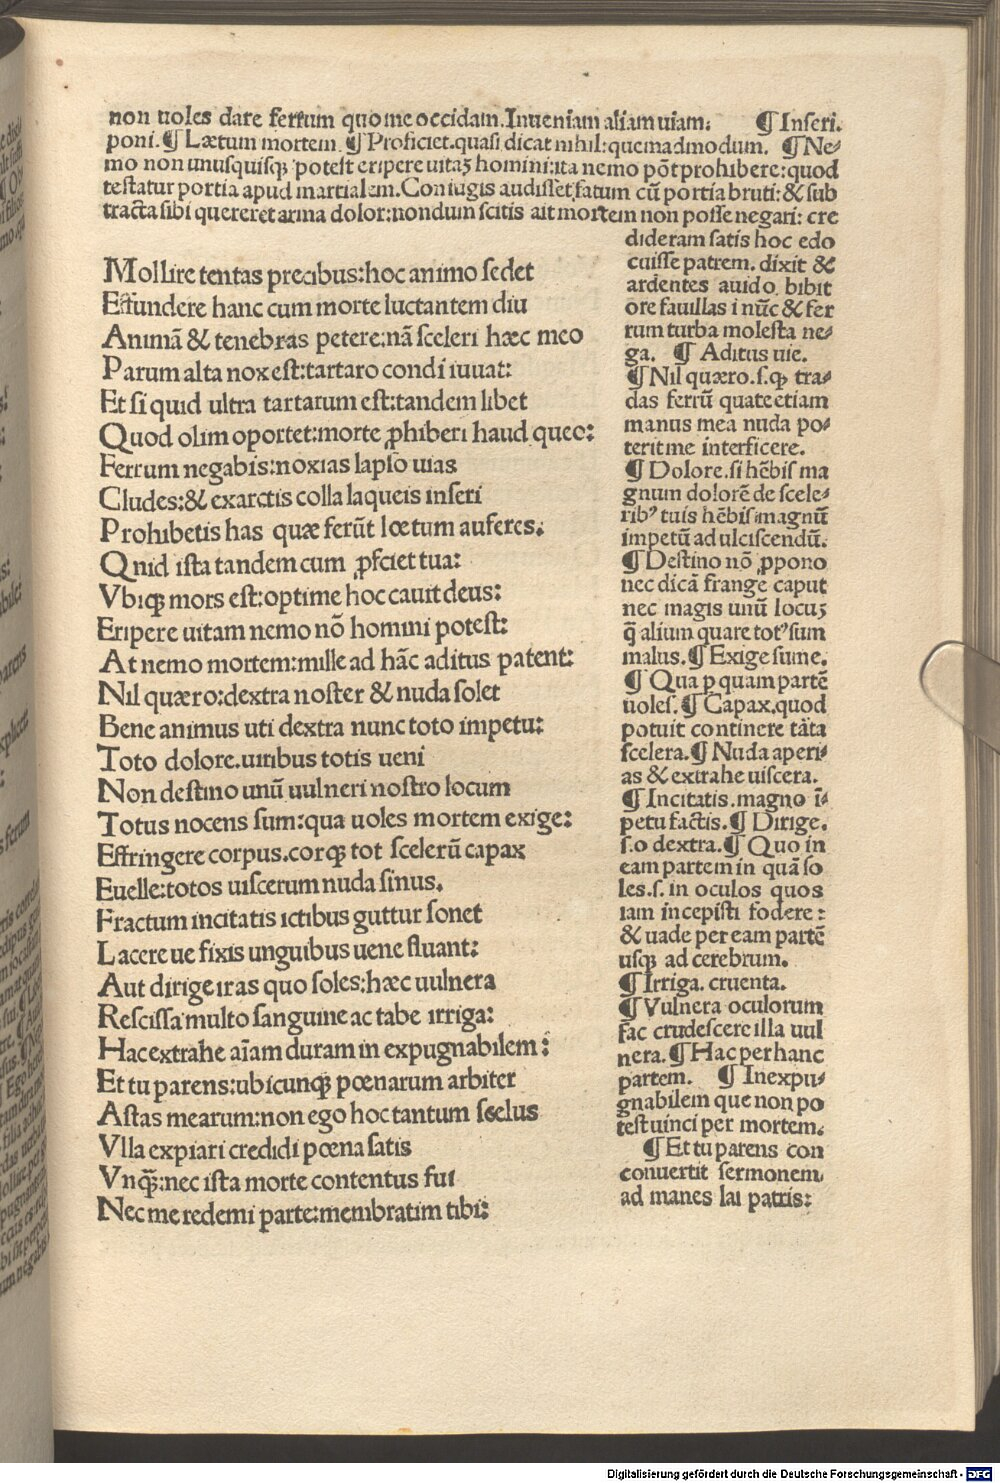 non uoles dare ferrum quo me occidam. Inueniam aliam uiam: ¶ Inseri.
poni. ¶ Lætum mortem. ¶ Proficiet. quasi dicat nihil: quemadmodum. ¶ Ne-
mo non unusquisqꝫ potest eripere uitaꝫ homini: ita nemo põt prohibere: quod
testatur portia apud martialem. Coniugis audisset fatum cũ portia bruti: & sub
tracta sibi quereret arma dolor: nondum scitis ait mortem non posse negari: cre
dideram satis hoc edo
cuisse patrem. dixit &
ardentes auido. bibit
ore fauillas i nũc & fer
rum turba molesta ne-
ga. ¶ Aditus uie.
¶ Nil quæro. s. qꝫ tra-
das ferrũ quate etiam
manus mea nuda po-
terit me interficere.
¶ Dolore. si hẽbis ma
gnum dolorẽ de scele-
ribꝰ tuis hẽbis magnũ
impetũ ad ulciscendũ.
¶ Destino nõ ꝓpono
nec dicã frange caput
nec magis unũ locuꝫ
q̃ alium quare totꝰ sum
malus. ¶ Exige sume.
¶ Qua p quam partẽ
uoles. ¶ Capax. quod
potuit continere tãta
scelera. ¶ Nuda aperi-
as & extrahe uiscera.
¶ Incitatis. magno ĩ-
petu factis. ¶ Dirige.
s. o dextra. ¶ Quo in
eam partem in quã so
les. s. in oculos quos
iam incepisti fodere:
& uade per eam partẽ
usqꝫ ad cerebrum.
¶ Irriga. cruenta.
¶ Vulnera oculorum
fac crudescere illa uul
nera. ¶ Hac per hanc
partem. ¶ Inexpu-
gnabilem que non po
test uinci per mortem.
¶ Et tu parens con
conuertit sermonem
ad manes lai patris:
Mollire tentas precibus: hoc animo sedet
Effundere hanc cum morte luctantem diu
Animã & tenebras petere: nã sceleri hæc meo
Parum alta nox est: tartaro condi iuuat:
Et si quid ultra tartarum est: tandem libet
Quod olim oportet: morte ꝓhiberi haud queo:
Ferrum negabis: noxias lapso uias
Cludes: & exarctis colla laqueis inseri
Prohibetis has quæ ferũt lœtum auferes.
Qnid ista tandem cum ꝓfciet tua:
Vbiqꝫ mors est: optime hoc cauit deus:
Eripere uitam nemo nõ homini potest:
At nemo mortem: mille ad hãc aditus patent:
Nil quæro: dextra noster & nuda solet
Bene animus uti dextra nunc toto impetu:
Toto dolore. uiribus totis ueni
Non destino unũ uulneri nostro locum
Totus nocens sum: qua uoles mortem exige:
Effringere corpus. corqꝫ tot scelerũ capax
Euelle: totos uiscerum nuda sinus.
Fractum incitatis ictibus guttur sonet
Lacere ue fixis unguibus uene fluant:
Aut dirige iras quo soles: hæc uulnera
Rescissa multo sanguine ac tabe irriga:
Hac extrahe aĩam duram in expugnabilem:
Et tu parens: ubicunqꝫ pœnarum arbiter
Astas mearum: non ego hoc tantum scelus
Vlla expiari credidi pœna satis
Vnqꝫ̃: nec ista morte contentus fui
Nec me redemi parte: membratim tibi:
Digitalisierung gefördert durch die Deutsche Forschungsgemeinschaft - DFG